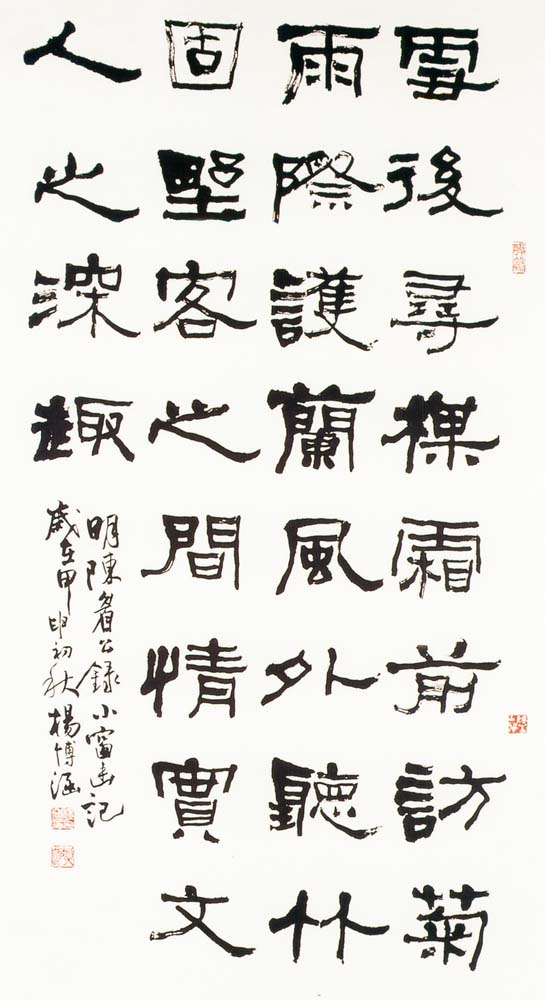 雪後尋楳霜前訪菊
雨際護蘭風外聽竹
固野客之間情實文
人之深趣
明陳眉公錄小窗幽記
歲在甲申初秋楊博涵